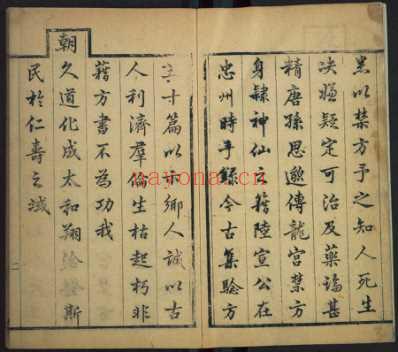 墨以禁方予之知人死生
决嫌疑定可治及藥論甚
精唐孫思邈傳龍宮禁方
身隸神仙之籍陸宣公在
忠州時手錄今古集驗方
五十篇以示鄉人誠以古
人利濟羣倫生枯起朽非
藉方書不為功我
朝
久道化成太和翔洽登斯
民於仁壽之域
nayona.cn